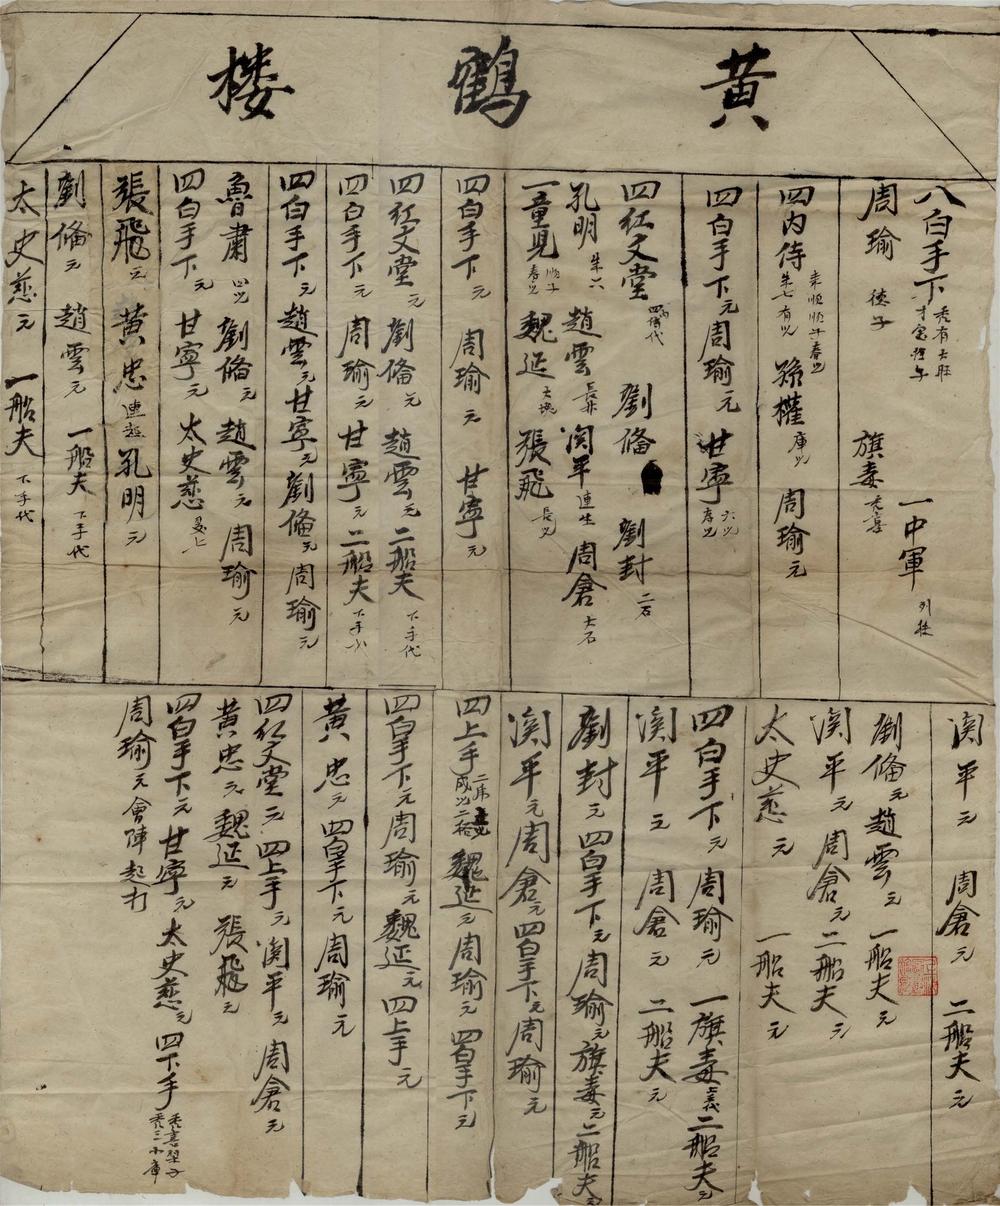 黄鶴楼
八白手下 秃有大旺
周瑜 德子 旗毒 秃喜
一中軍
四内侍 朱七有父 孫權 庫父 周瑜元
四白手下元周瑜元甘寧
四红文堂 劉俻 劉封 二石
孔明 朱六 趙雲 長升 関平 連生 周倉 大石
一童児 順子 魏延 大塊 張飛 長父
四白手下元 周瑜元 甘寧元
四红文堂元 劉俻元 趙雲元 二船夫 下手代
四白手下元 周瑜元 甘寧元 二船夫
四白手下元趙雲元甘寧元劉俻元周瑜元
魯肃 四父 劉俻元 趙雲元 周瑜元
四白手下元 甘寧元 太史慈
張飛元 黄忠 孔明元
劉俻元 趙雲元 一船夫 下手代
太史慈元 一船夫 下手代
関平元 周倉元 二船夫元
劉俻元趙雲元 一船夫元
関平元周倉元二船夫元
太史慈元 一船夫元
四白手下元 周瑜元 一旗毒 二船夫元
関平元 周倉元 二船夫元
劉封元四白手下元周瑜元旗毒元二船夫元
関平元周倉元四白手下元周瑜元
四上手 魏延元周瑜元四白手下元
四白手下元周瑜元魏延元四上手元
黄忠元四白手下元周瑜元
四红文堂元四上手元関平元周倉元
黄忠元魏延元張飛元
四白手下元甘寧元太史慈元四下手
周瑜元會陣起打